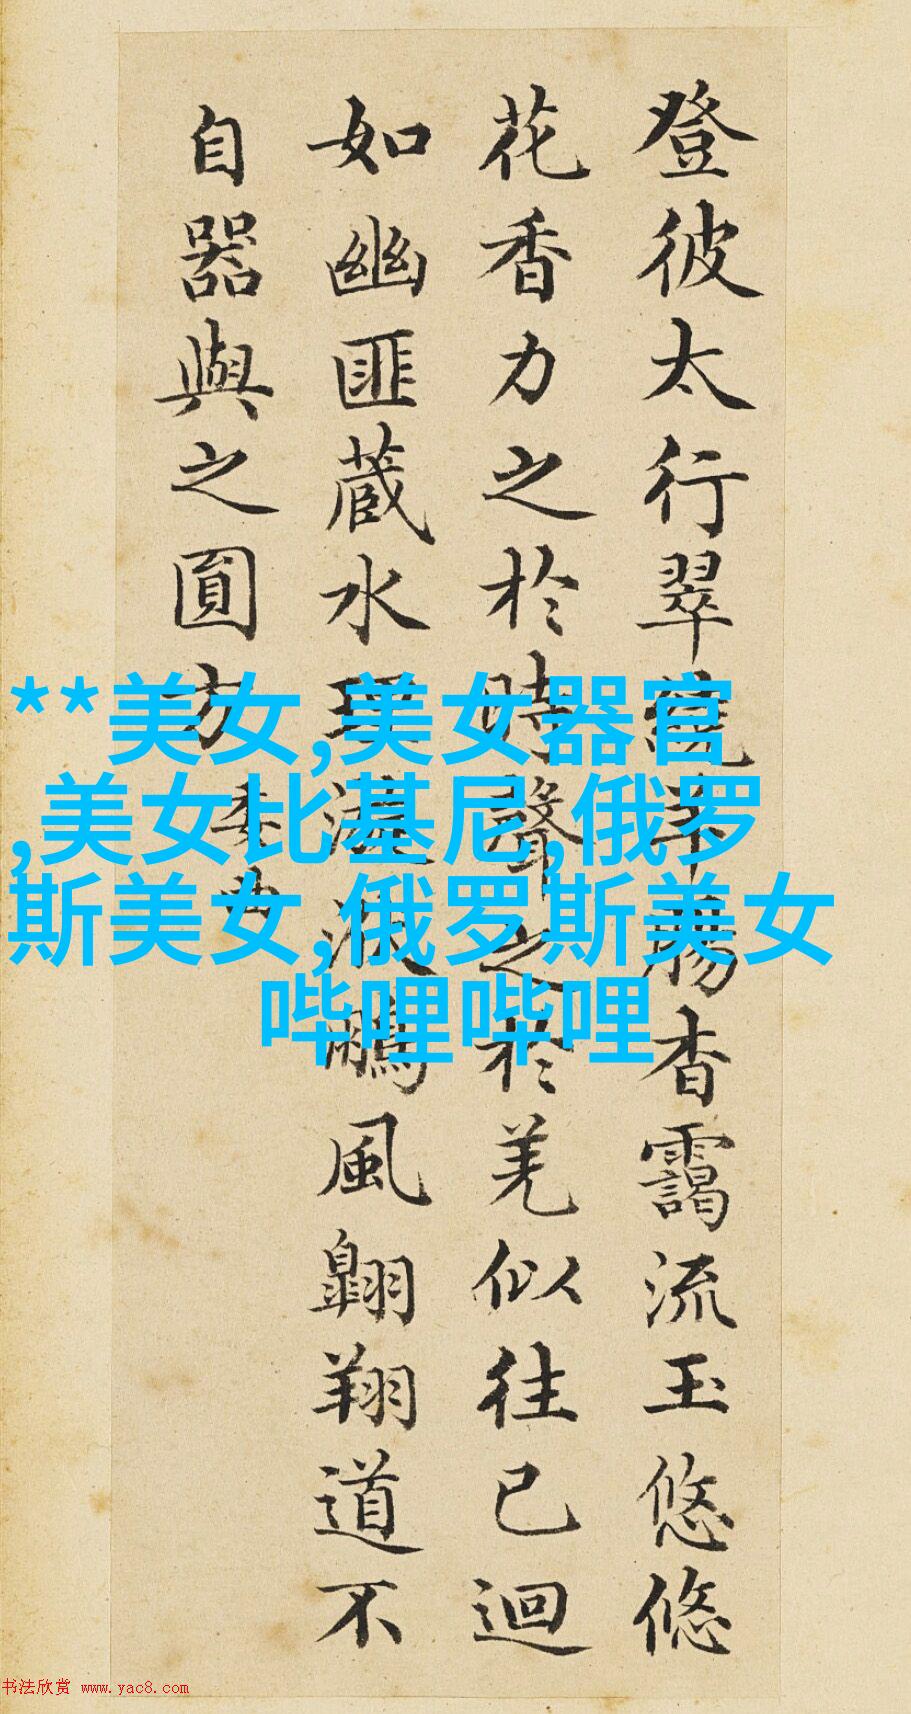 登彼太行翠繞羊腸杳靄流玉悠悠
花香力之於時聲之於羌似往已迴
如幽匪藏水理漩洑鵬風翺翔道不
自器與之圓方
委曲
**美女,美女器官
,美女比基尼,俄罗
斯美女,俄罗斯美女
哔哩哔哩
书法欣赏 www.yac8.com